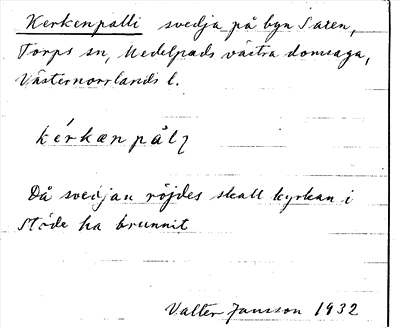 Kerkenpalli svedja på byn Saxen,
Torps sn, Medelpads västra domsaga,
Västernorrlands l.
kérkæn pålɩ
Då svedjan röjdes skall kyrkan i
Stöde ha brunnit
Valter Jansson 1932